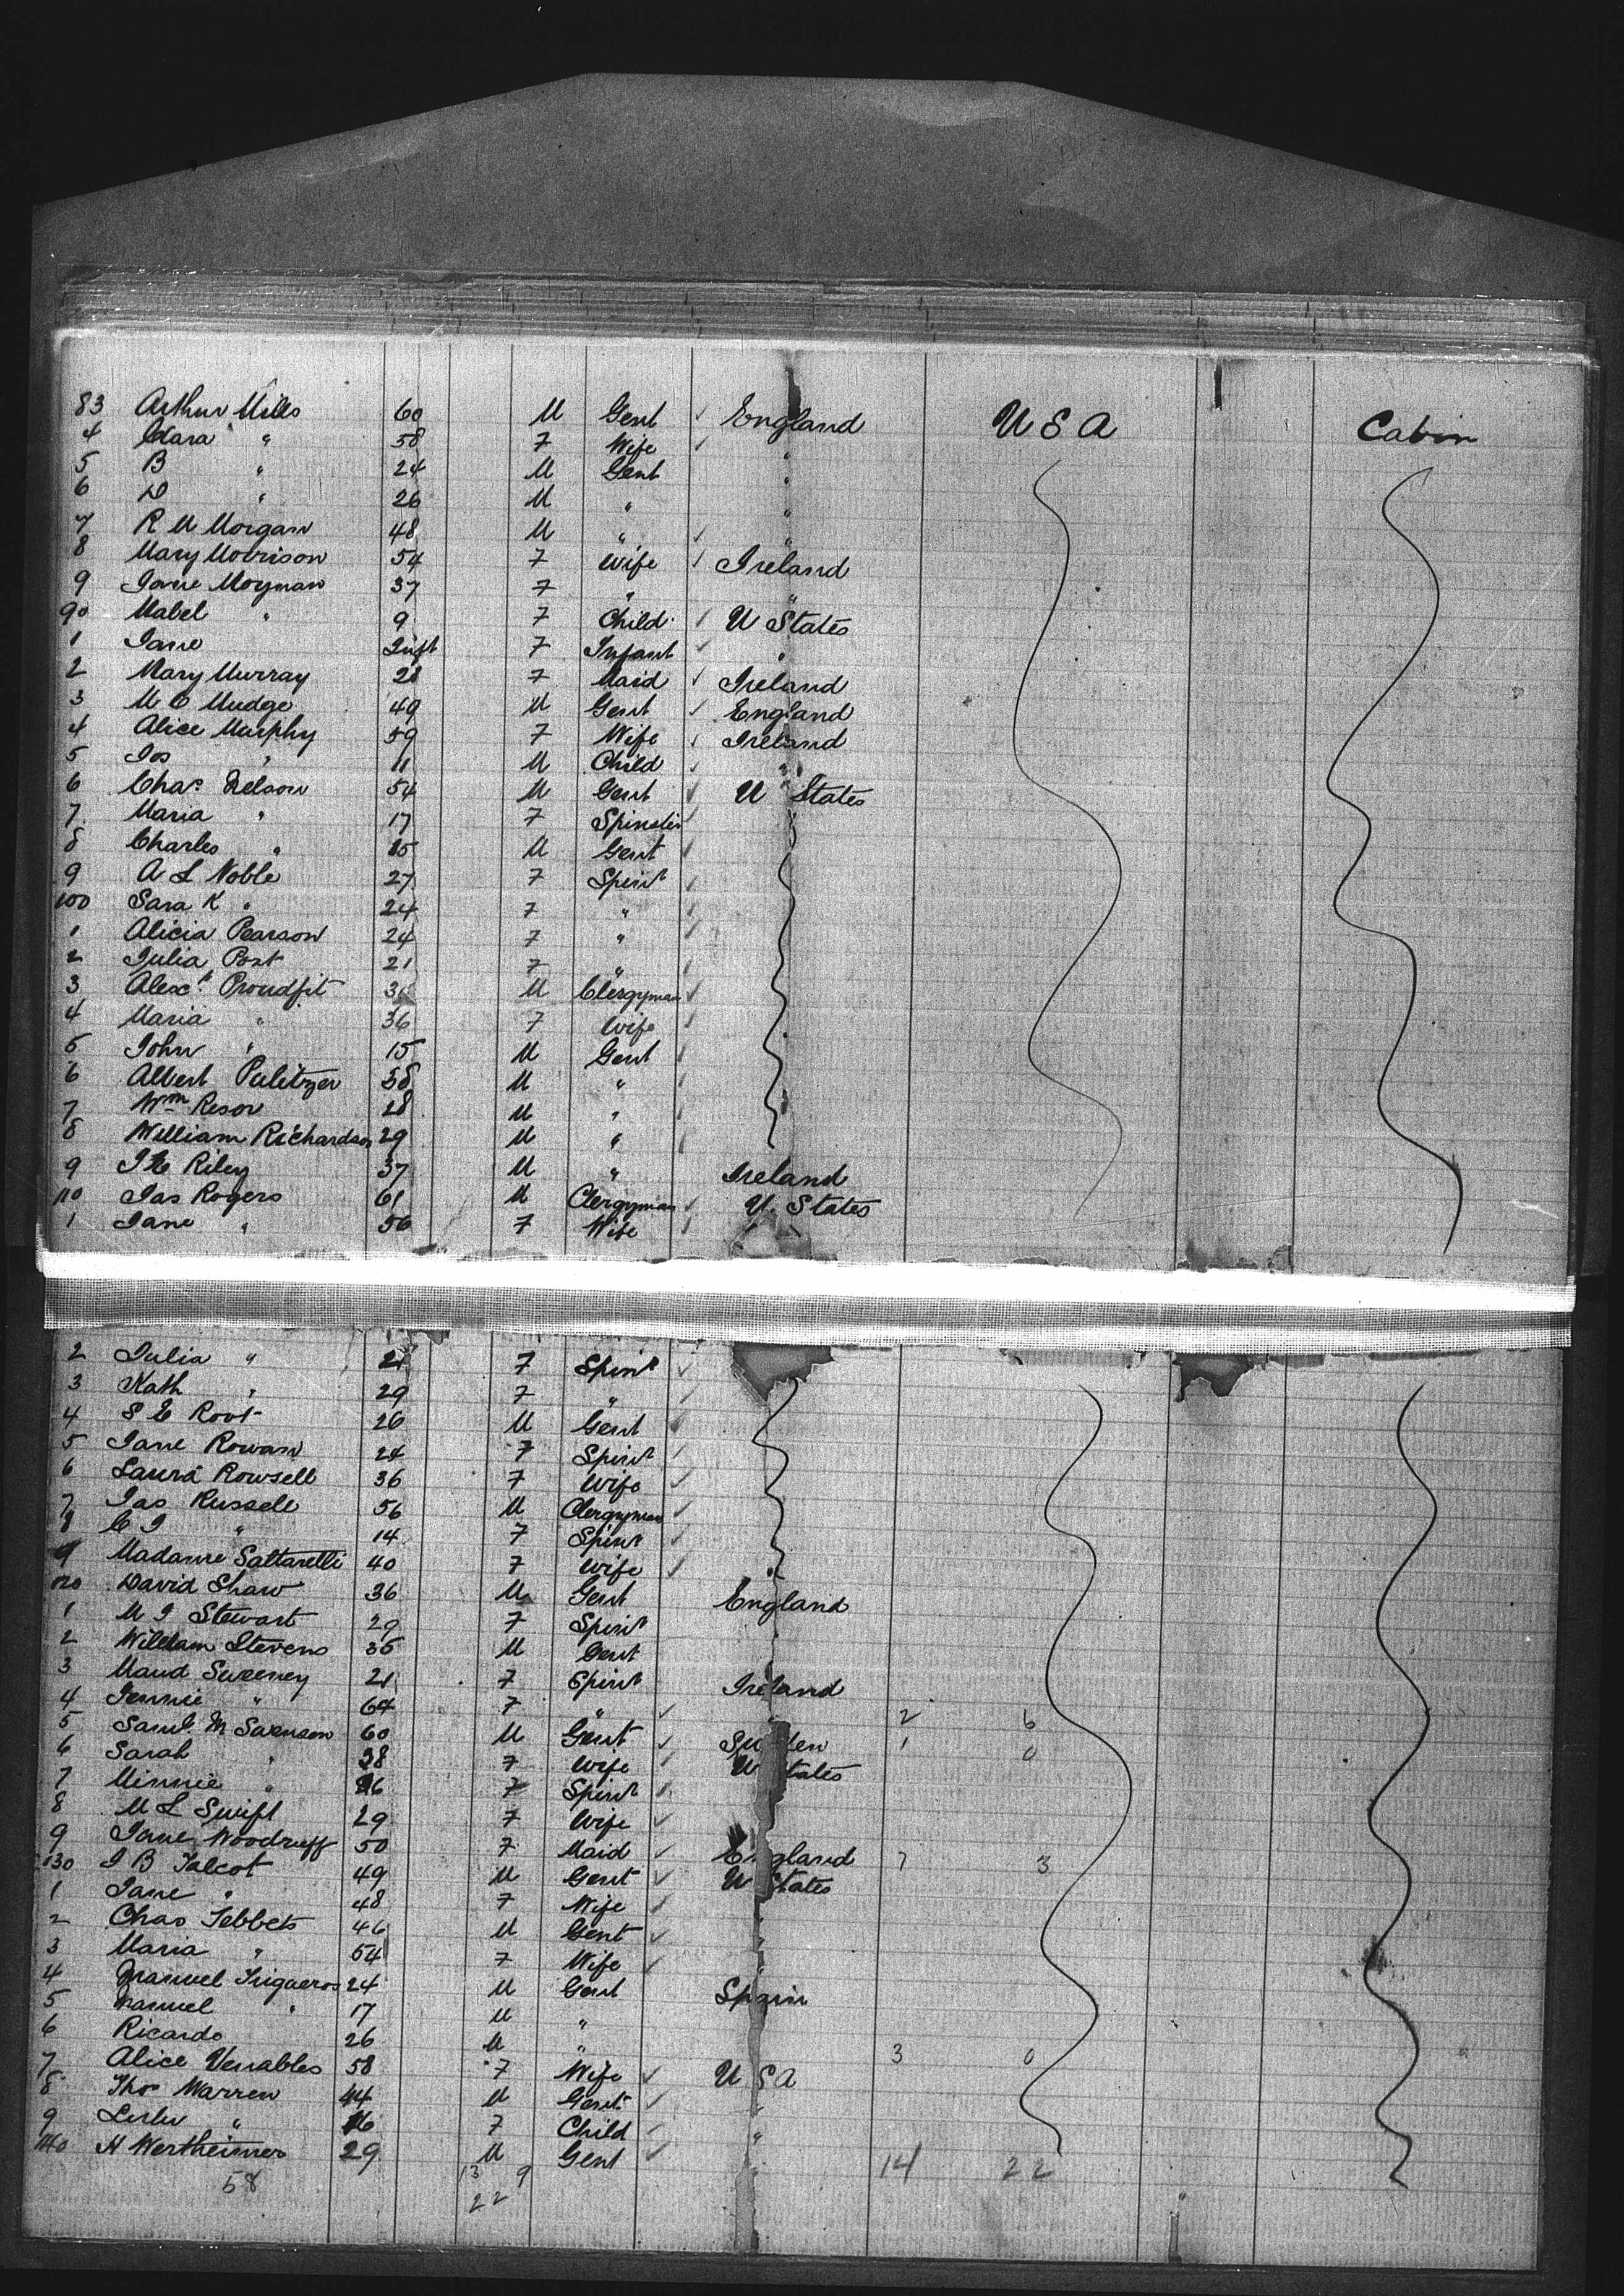 83 Arthur Miles 60 M Gent ✓ England U S A Cabin
4 Clara " 58 F Wife ✓ "
5 B " 24 M Gent "
6 D " 26 M " "
7 R M Morgan 48 M " ✓ "
8 Mary Morrison 54 F Wife ✓ Ireland
9 Jane Moynan 37 F " "
90 Mabel " 9 F Child ✓ U States
1 Jane Inft F Infant ✓ "
2 Mary Murray 28 F Maid ✓ Ireland
3 M C Mudge 49 M Gent ✓ England
4 Alice Murphy 59 F Wife ✓ Ireland
5 Jos " 11 M Child ✓ "
6 Chas. Nelson 54 M Gent ✓ U States
7 Maria " 17 F Spinster ✓
8 Charles " 15 M Gent ✓
9 A L Noble 27 F Spinr ✓
100 Sara K " 24 F " ✓
1 Alicia Pearson 24 F " ✓
2 Julia Post 21 F " ✓
3 Alexr. Proudfit M Clergyman ✓
4 Maria " 36 F Wife ✓
5 John " 15 M Gent ✓
6 Albert Pulitzer 38 M " ✓
7 Wm Resor 28 M " ✓
8 William Richardson 29 M " ✓
9 Riley 37 M " Ireland
110 Jas Rogers 61 M Clergyman ✓ U. States
1 Jane " 56 F Wife ✓
2 Julia " 21 F Spinr ✓
3 Kath " 29 F " ✓
4 S E Root 26 M Gent ✓
5 Jane Rowan 24 F Spinr ✓
6 Laura Rowsell 36 F Wife ✓
7 Jas Russell 56 M Clergyman ✓
8 C J " 14 F Spinr ✓
9 Madame Sattarelli 40 F Wife ✓
120 David Shaw 36 M Gent England
1 M J Stewart 29 F Spinr
2 William Stevens 35 M Gent
3 Maud Sweeney 21 F Spinr Ireland
4 Jennie " 64 F " ✓ 2 6
5 Saml. M Swenson 60 M Gent ✓ Sweden 1 0
6 Sarah " 38 F Wife ✓ U States
7 Minnie " 16 F Spinr ✓
8 M L Swift 29 F Wife ✓
9 Jane Woodruff 50 F Maid ✓ England 7 3
130 J B Talcot 49 M Gent ✓ U States
1 Jane " 48 F Wife ✓ "
2 Chas Tebbets 46 M Gent ✓ "
3 Maria " 54 F Wife ✓ "
4 Manuel Trigueros 24 M Gent Spain
5 Manuel " 17 M "
6 Ricardo 26 M " 3 0
7 Alice Venables 58 F Wife ✓ U S A
8 Thos Warren 44 M Gent ✓ "
9 " 16 F Child ✓ "
140 H Wertheimer 29 M Gent ✓ " 14 22
58 13 9
22